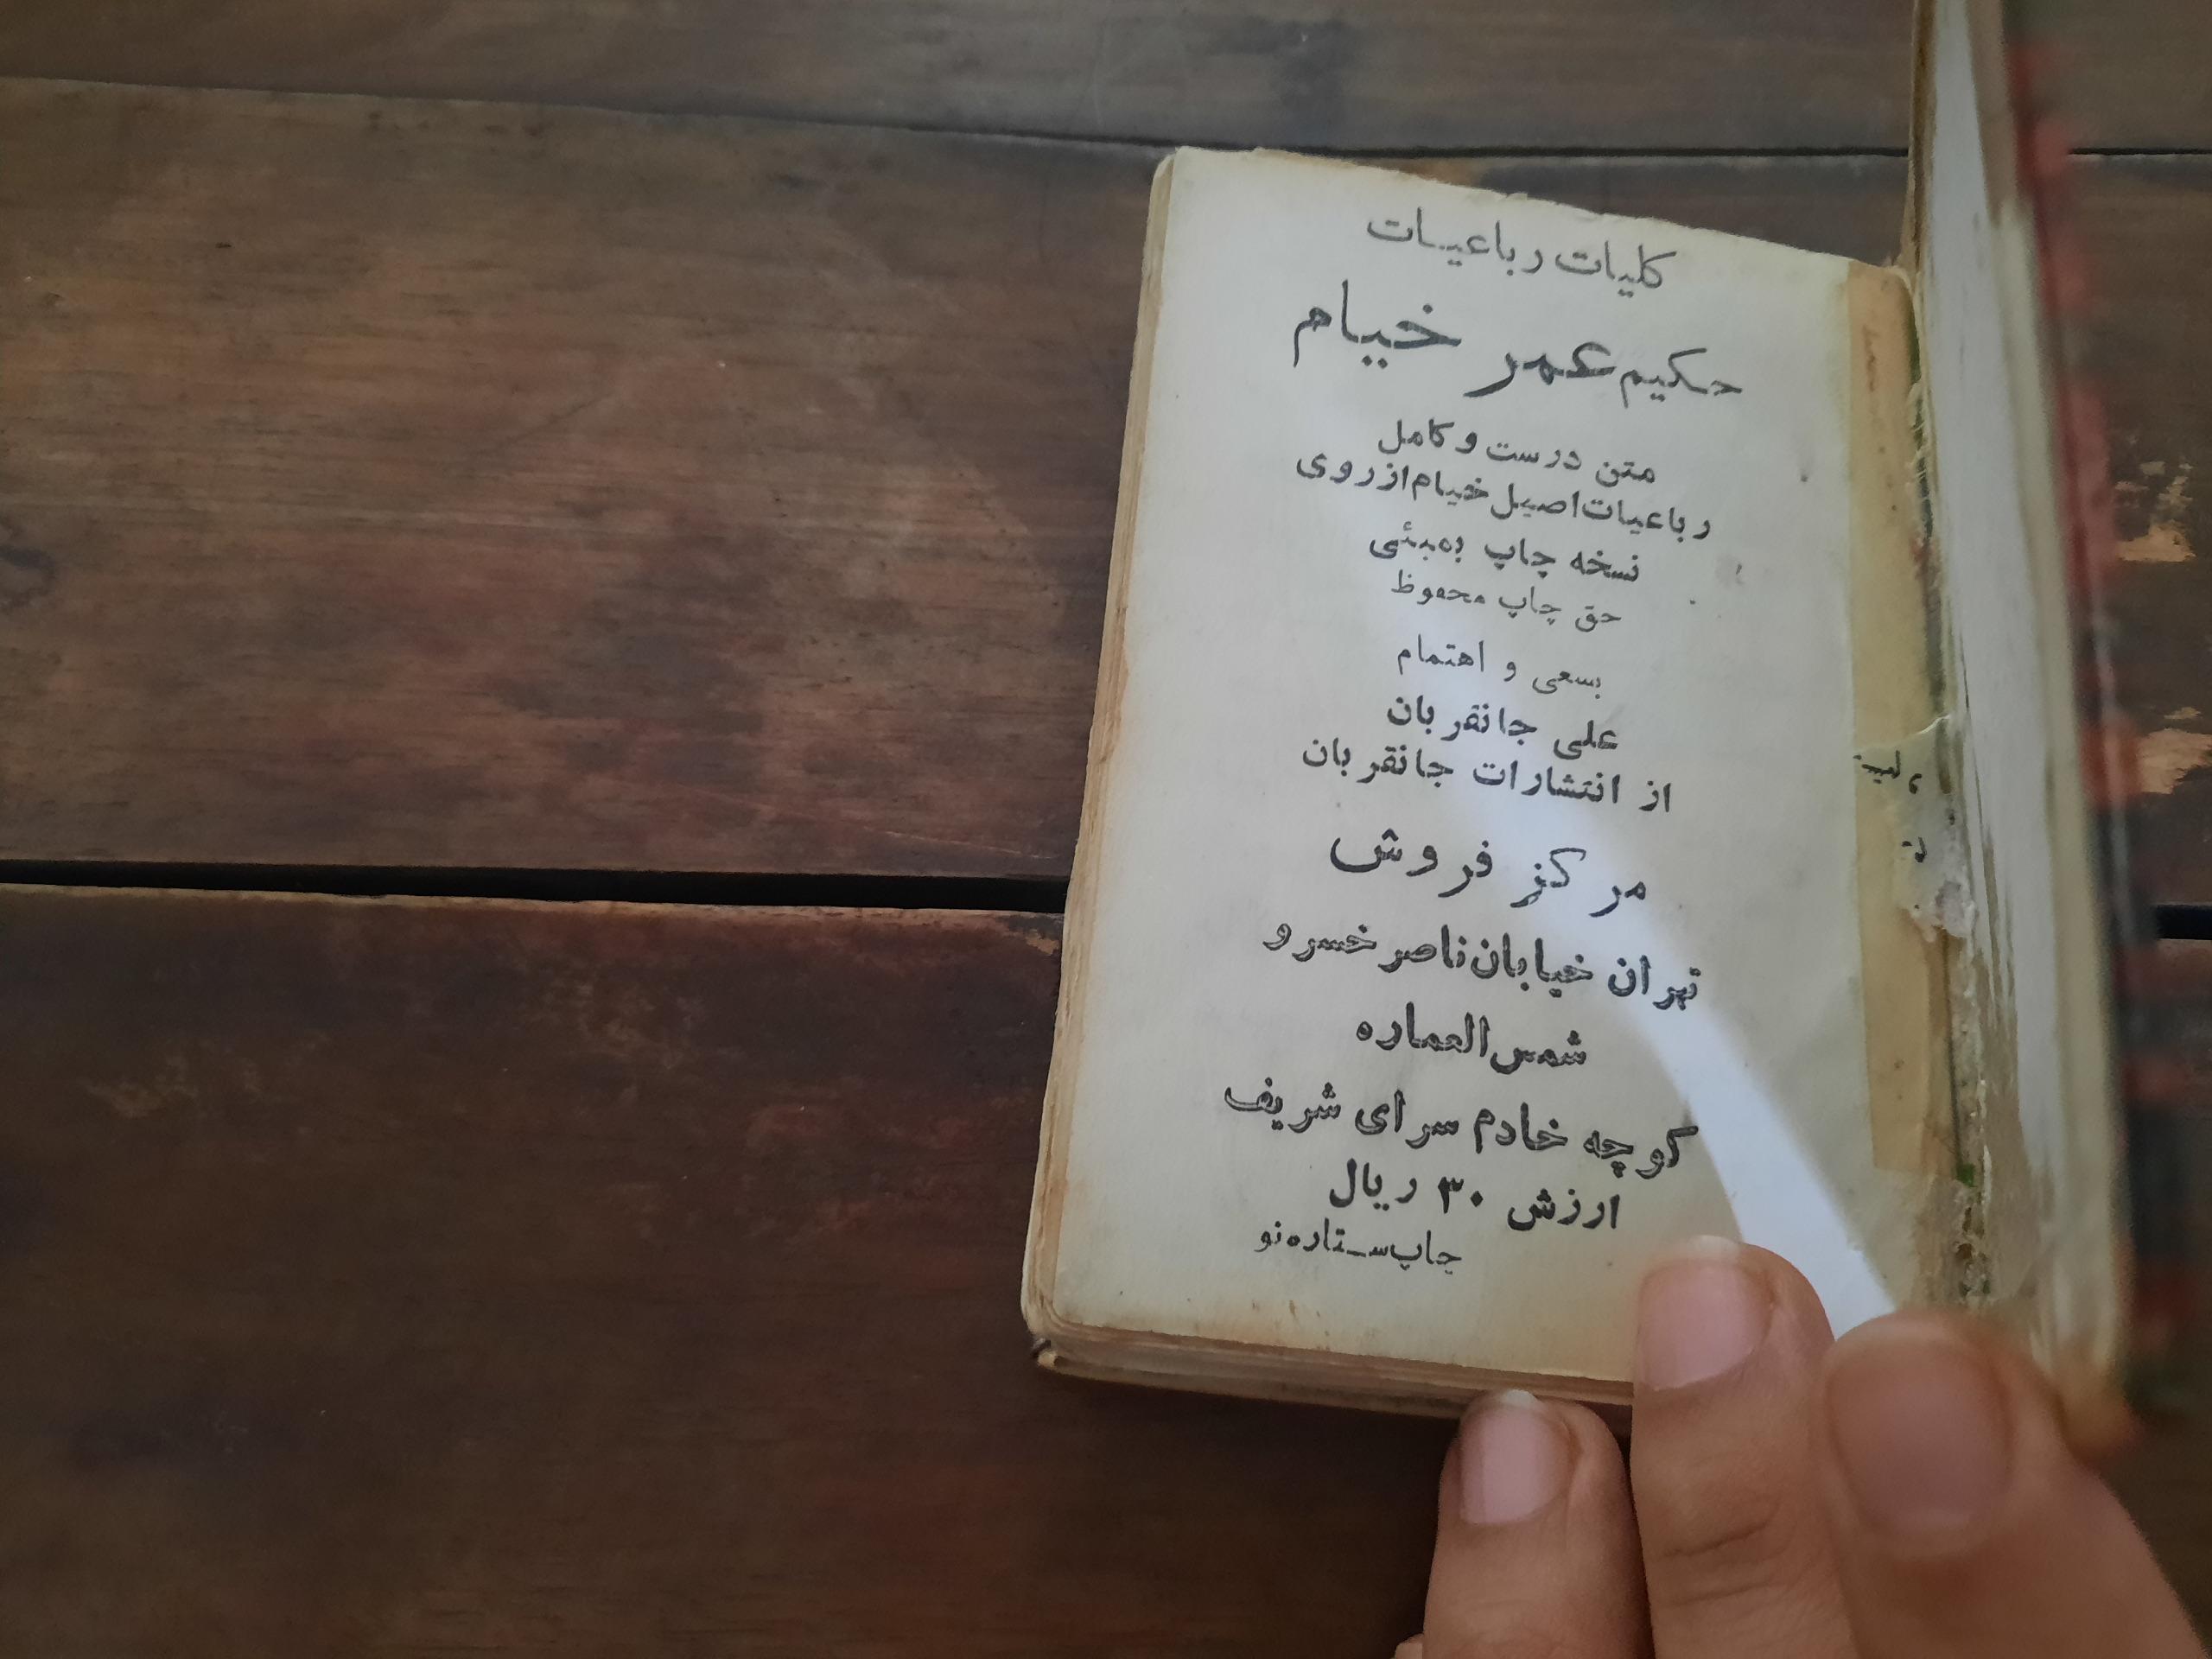 کلیات رباعیات
حکیم عمر خیام
متن درست و کامل
رباعیات اصیل خیام از روی
نسخه چاپ بمبئی
حق چاپ محفوظ
بسعی و اهتمام
علی جانقربان
از انتشارات جانقربان
مرکز فروش
تهران خیابان ناصر خسرو
شمس‌العماره
کوچه خادم سرای شریف
ارزش ۳۰ ریال
چاپ ستاره نو